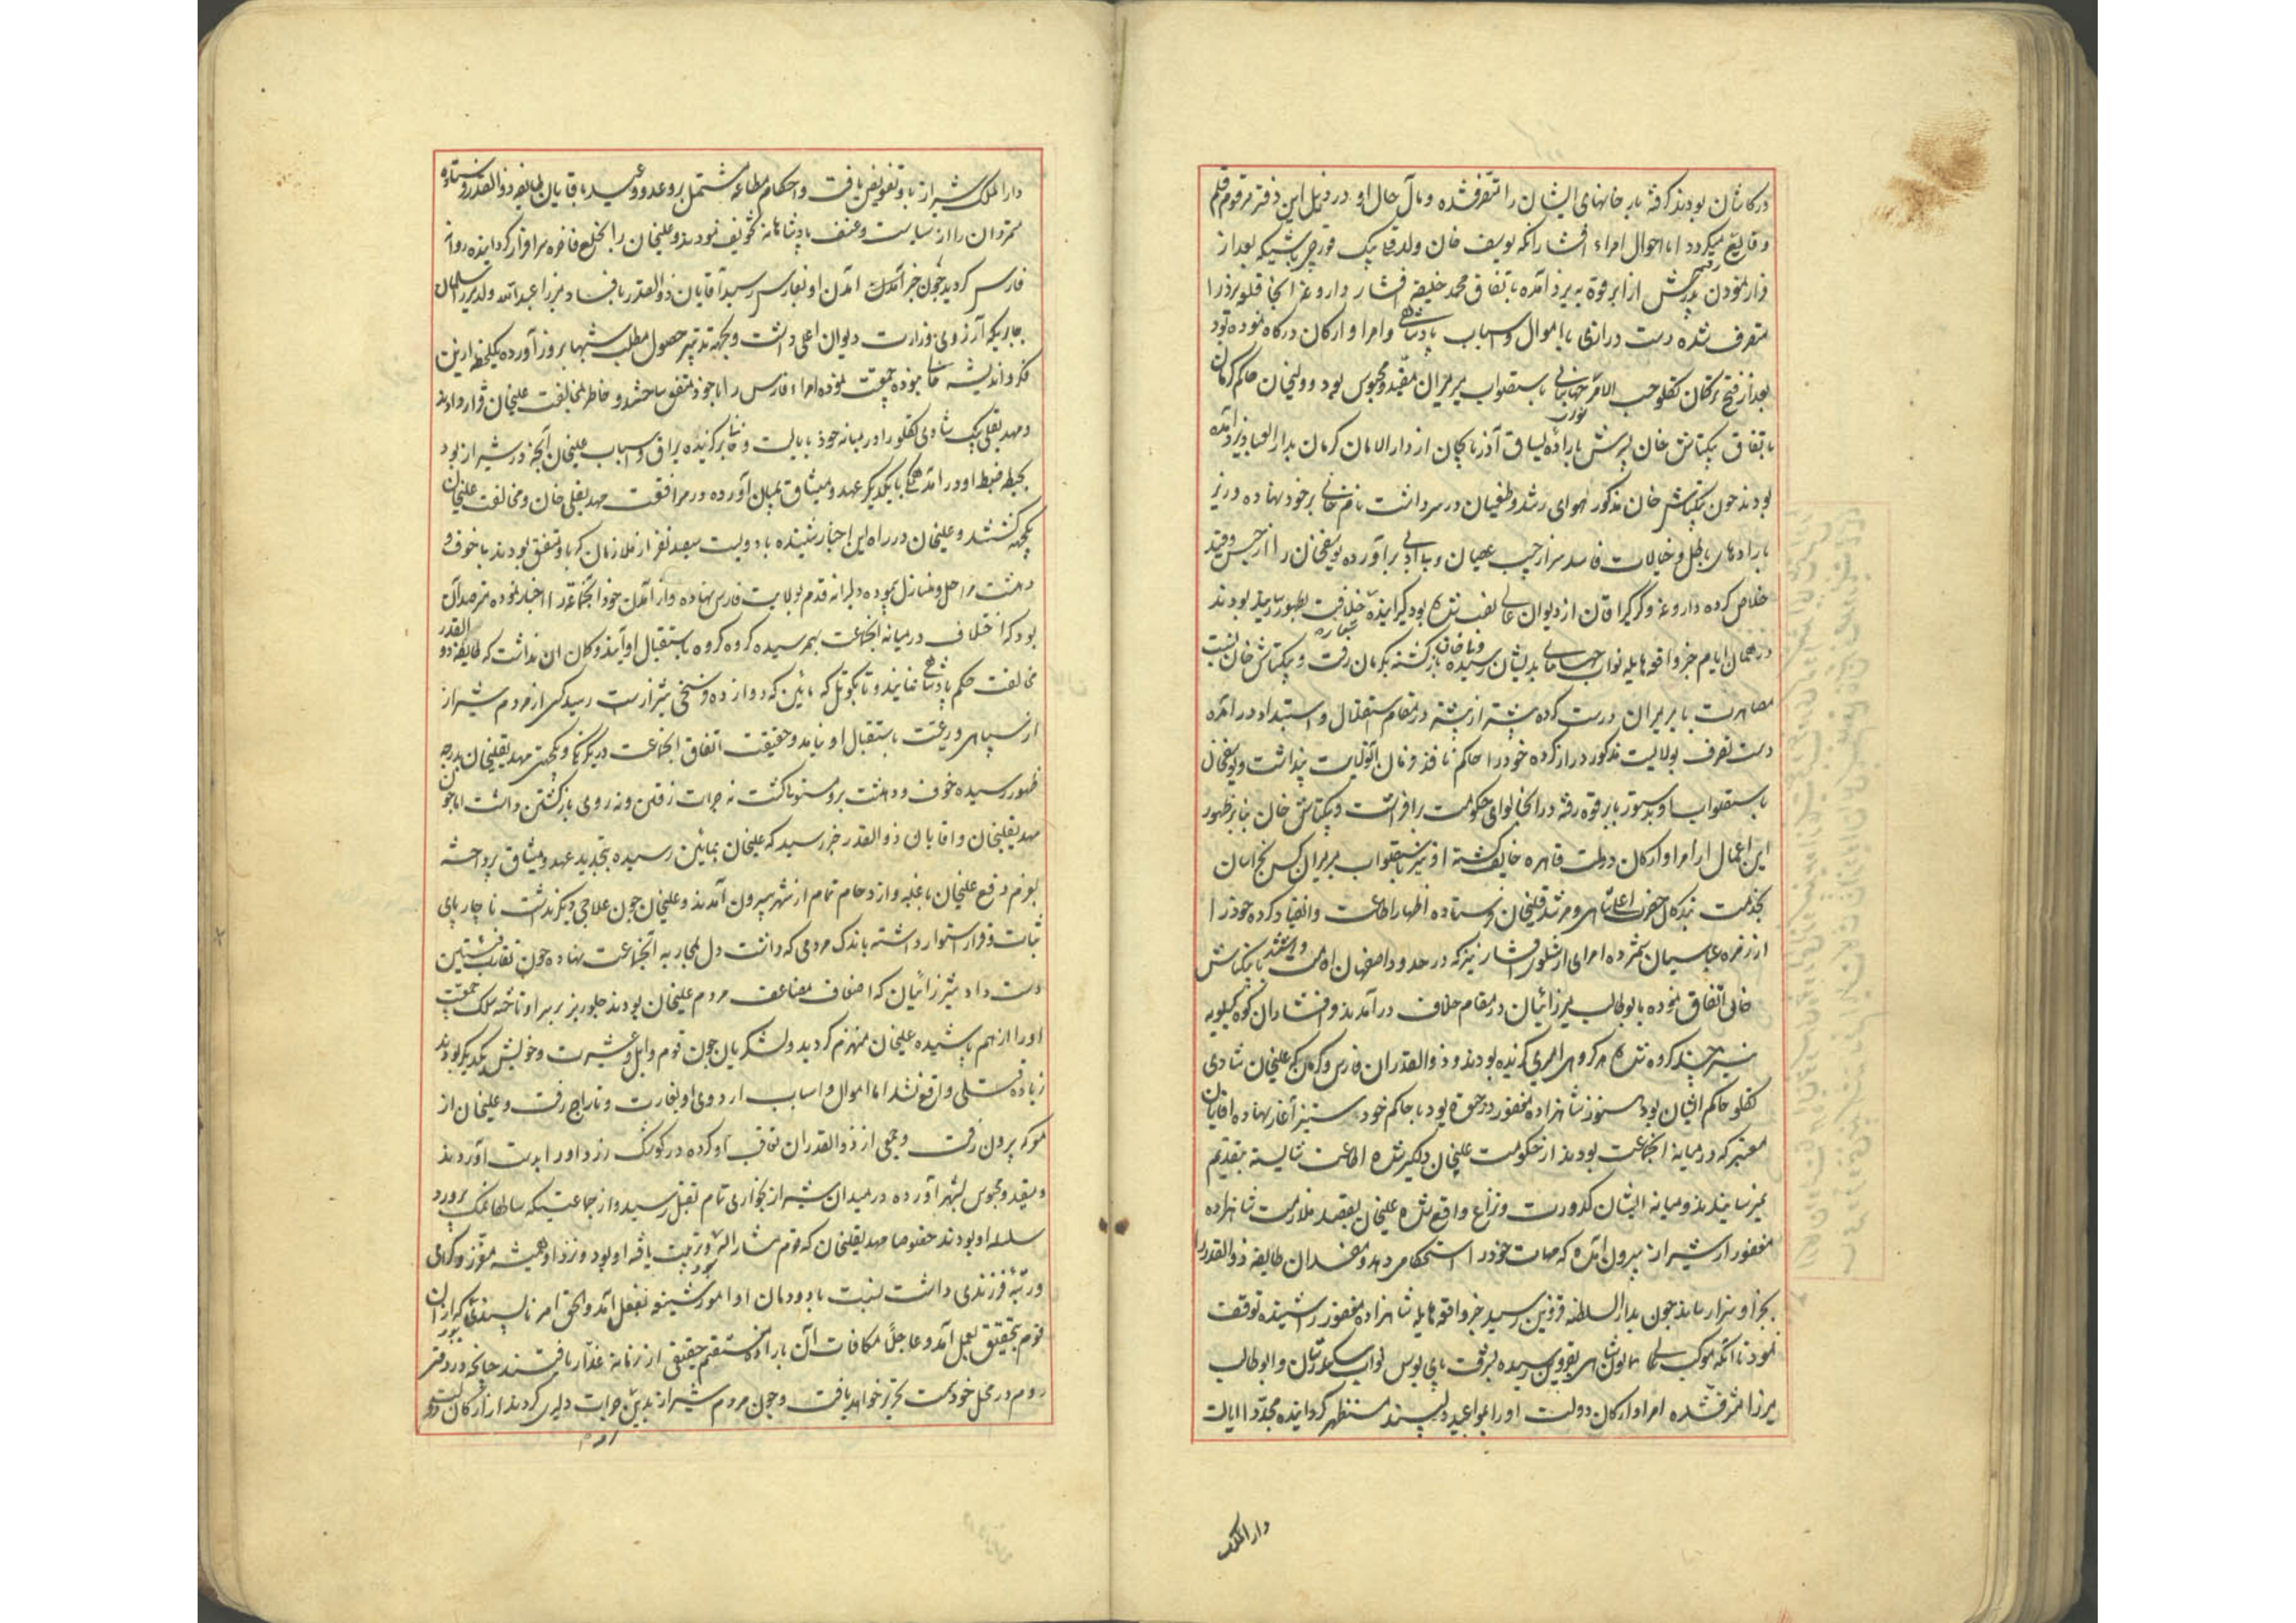 در کاشان بودند گرفته به خانهای ایشان را متصرف شده و مآل حال او در ذیل این دفتر مرقوم قلم
وقایع میگردد اما احوال امراء افشار آنکه یوسف خان ولد قلی بیک قورچی باشی که بعد از
فرار نمودن پدرش از ابرقوه به یزد آمده باتفاق محمد خلیفه افشار داروغه آنجا قلعه یزد را
متصرف شده دست درازی باموال و اسباب پادشاهی و امرا و ارکان درگاه نموده بود
بعد از فتح ترکان تکلو حسب الامر جهانبانی باستصواب میرمیران مقید و محبوس بود و ولیخان حاکم کرمان
باتفاق بیکتاش خان پسرش باراده یساق آذربایجان از دار الامان کرمان بدار العباد یزد آمده
بودند چون بیکتاش خان مذکور هوای رشد و طغیان در سر داشت نام خانی بر خود نهاده در یزد
بارادهای باطل و خیالات فاسد سر از جیب عصیان و بی ادبی برآورده یوسفخان را از حبس و قید
خلاص کرده داروغه و گرگیراقان از دیوان عالی تعیین شده بود گیرانیده خلافت بظهور رسانید بودند
در همان ایام خبر واقعه هایله نواب جهانبانی بدیشان رسیده ولیخان بازگشته بکرمان رفت و بیکتاش خان نسبت
مصاهرت با میرمیران درست کرده پشته از پشته در مقام استقلال و استبداد درآمده
دست تصرف بولایت مذکور دراز کرده خود را حاکم نافذ فرمان آنولایت پنداشت و یوسفخان
باستصواب او بدستور بابرقوه رفته در آنجا لوای حکومت برافراشت و بیکتاش خان بنابر ظهور
این اعمال از امرا و ارکان دولت قاهره خایف گشته او نیز باستصواب میرمیران کس بخراسان
بخدمت بندکان حضرت اعلی شاهی و مرشد قلیخان فرستاده اظهار اطاعت و انقیاد کرده خود را
از زمره عباسیان شمرده امرای ارشلوی افشار نیز که در حدود اصفهان اقامت داشتند با بیکتاش
خان اتفاق نموده با ابوطالب میرزائیان در مقام خلاف درآمدند و افشاران کوه کیلویه
نیز چند کروه شده هر کروهی امیری گزیده بودند و ذوالقدران فارس و کرمان که علیخان شادی
تکلو حاکم ایشان بود هنوز شاهزاده مغفور در حیوة بود با حاکم خود ستیز آغاز نهاده آقایان
معتبر که در میانه آنجماعت بودند از حکومت علیخان دلگیر شده اطاعت شایسته بتقدیم
نمیرسانیدند و میانه ایشان کدورت و نزاع واقع شده علیخان بقصد ملازمت شاهزاده
مغفور از شیراز بیرون آمده که مهمات خود را استحکام دهد و مفسدان طایفه ذوالقدر را
بجزا و سزا رساند چون بدار السلطنه قزوین رسید خبر واقعه هایله شاهزاده مغفور را شنیده توقف
نمود تا آنکه موکب عالی همایون شاهی بقزوین رسیده بشرف پای بوس نواب سکندرشان و ابوطالب
میرزا مشرف شده امرا و ارکان دولت او را بمواعید دلپسند مستظهر گردانیده مجددا ایالت
دار الملک
دار الملک شیراز باو تفویض یافت و احکام مطاعه مشتمل بر وعد و وعید باقایان طایفه ذوالقدر فرستاده
متمردان را از سیاست و عنف پادشاهانه تخویف نمودند و علیخان را بخلع فاخره سرافراز گردانیده روانه
فارس گردید چون خبر آمدن او بفارس رسید آقایان ذوالقدر بافساد میرزا عبدالله ولد میرزا سلمان
جابری که آرزوی وزارت دیوان اعلی داشت و بجهة تدبیر حصول مطلب شبها بروز آورده یکلحظه ازین
فکر و اندیشه خالی نبوده جمعیت نموده امراء فارس را با خود متفق ساختند و خاطر بمخالفت علیخان قرار دادند
و مهدیقلی بیک شادی تکلو را در میانه خود بایالت و خانی برگزیده یراق و اسباب علیخان آنچه در شیراز بود
بحیطه ضبط او درآمد همگی با یکدیگر عهد و میثاق بمیان آورده در موافقت مهدیقلی خان و مخالفت علیخان
یکجهة گشتند و علیخان در راه این اخبار شنیده با دویست سیصد نفر از ملازمان که باو متفق بودند با خوف و
دهشت مراحل و منازل پیموده دلیرانه قدم بولایت فارس نهاده و از آمدن خود آنجماعة را اخبار نموده مترصد آن
بود که اختلاف در میانه آنجماعت بهم رسیده کروه کروه باستقبال او آیند و کمان آن نداشت که طایفه ذوالقدر
مخالفت حکم پادشاهی نمایند و تا بکوتل که مائین که دوازده فرسخی شیراز است رسید کسی از مردم شیراز
از سپاهی و رعیت باستقبال او نیامد و حقیقت اتفاق آنجماعت در یکرنگی و یکجهتی مهدیقلیخان بدرجه
ظهور رسیده خوف و دهشت برو مستولی گشت نه جرات رفتن و نه روی بازگشتن داشت اما چون
مهدیقلیخان و اقایان ذوالقدر خبر رسید که علیخان بمائین رسیده بتجدید عهد و میثاق پرداخته
بعزم دفع علیخان با غلبه و ازدحام تمام از شهر بیرون آمدند و علیخان چون علاجی دیگر نداشت ناچار پای
ثبات و قرار استوار داشته باندک مردمی که داشت دل بمحاربه آنجماعت نهاده چون تقارب فئتین
دست داد شیرازئیان که اضعاف مضاعف مردم علیخان بودند جلوریز بر سر او تاخته سلک جمعیت
او را از هم پاشیده علیخان منهزم گردید و لشکریان چون قوم و ایل و عشیرت و خویش یکدیگر بودند
زیاده قتلی واقع نشد اما اموال و اسباب اردوی او بغارت و تاراج رفت و علیخان از
معرکه بیرون رفت و جمعی از ذوالقدران تعاقب او کرده در کوشک زرد او را بدست آوردند
و مقید و محبوس بشهر آورده در میدان شیراز بخواری تمام بقتل رسید و از جماعتیکه ساطها نمک پرورد
سلسله او بودند خصوصا مهدیقلیخان که قوم مشار الیه و تربیت یافته او بود و نزد او همیشه معزز و گرامی
و رتبه فرزندی داشت نسبت بدودمان او امور شنیعه بفعل آمد و الحق امر ناپسندی که از آن
قوم بتحقیق بعمل آمد و عاجلا مکافات آن باراده منتقم حقیقی از زمانه غدار یافتند چنانچه در دفتر
دوم در محل خود سمت تحریر خواهد یافت و چون مردم شیراز بدین جرات دلیری کردند از ارکان دولت